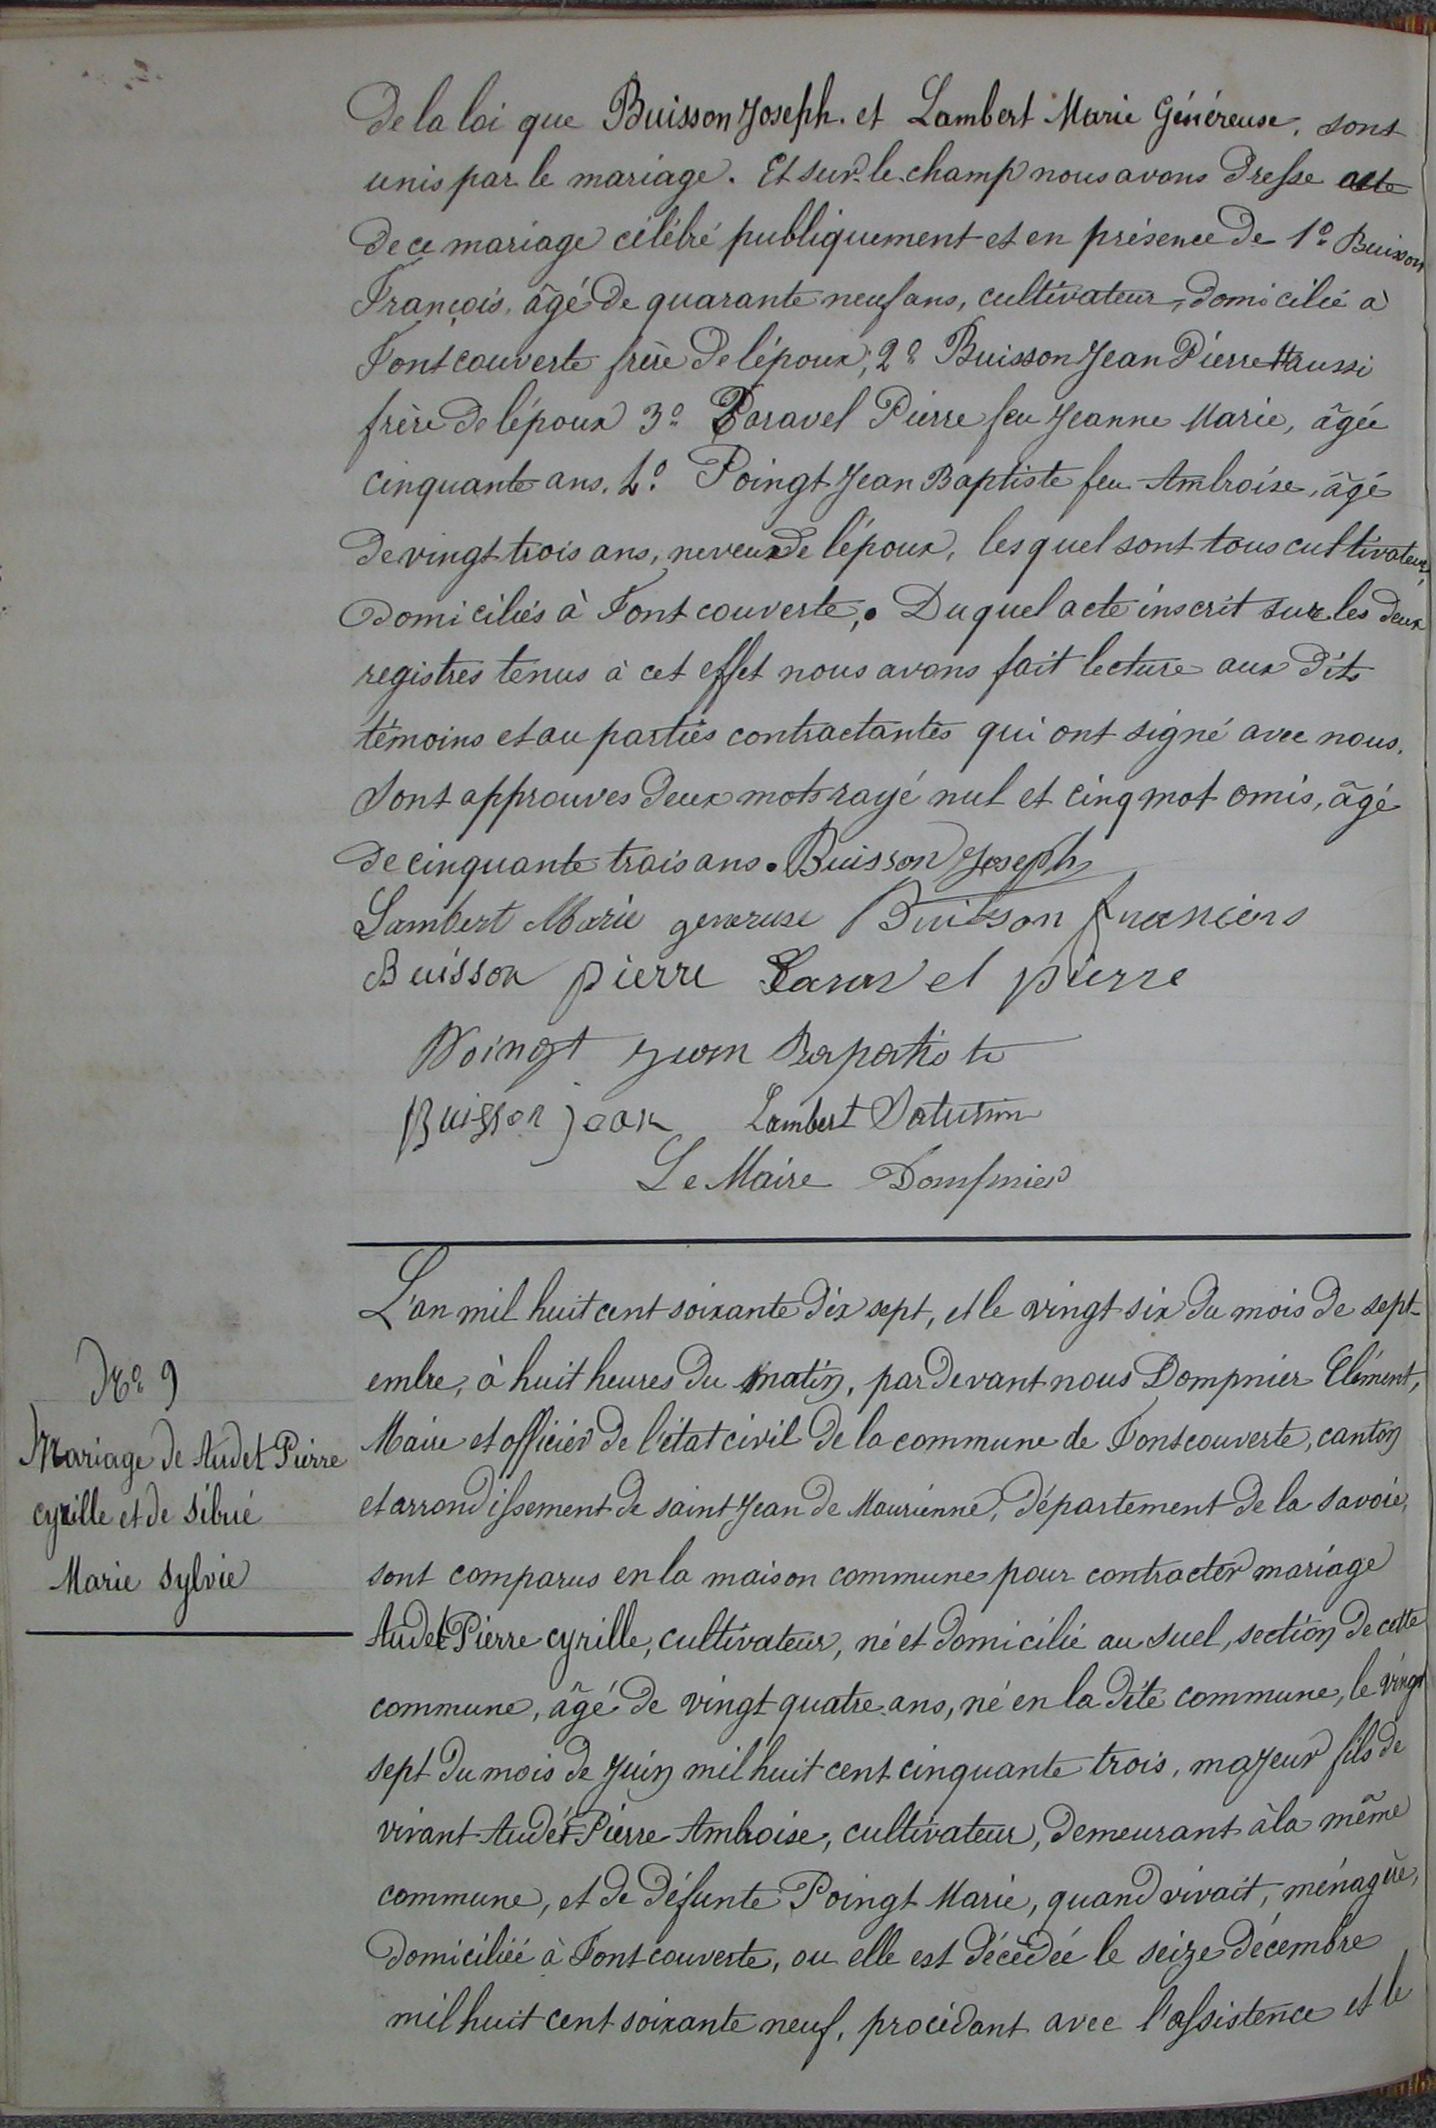 De la loi que Buisson Joseph. et Lambert Marie Généreuse, sont
unis par le mariage. Et sur le champ nous avons dresse acte
de ce mariage célébré publiquement et en présence de 1º Buisson
François, âgé de quarante neuf ans, cultivateur, domicilié à
Fontcouverte frère de l'époux; 2º Buisson Jean Pierre aussi
frère de l'époux 3º Taravel Pierre feu Jeanne Marie, âgée
cinquante ans. 4º Poingt Jean Baptiste feu Ambroise, âgé
de vingt trois ans, neveux de l'époux, lesquel sont tous cultivateur,
domiciliés à Fontcouverte,. Duquel acte inscrit sur les deux
registres tenus à cet effet nous avons fait lecture aux dits
témoins et au parties contractantes qui ont signé avec nous.
Sont approuves deux mots rayé nul et cinq mot omis, âgé
de cinquante trois ans. Buisson Joseph
Lambert Marie generuse Buisson
Buisson pierre pierre
Poingt
Buisson jean Lambert Saturnin
Le Maire Dompnier
L'an mil huit cent soixante dix sept, et le vingt six du mois de sept-
Nº 9
embre, à huit heures du matin, pardevant nous Dompnier Clément,
Mariage de Audet Pierre
Maire et officier de l'état civil de la commune de Fontcouverte, canton
cyrille et de Sibué
et arrondissement de saint Jean de Maurienne, département de la savoie,
Marie Sylvie
sont comparus en la maison commune pour contracter mariage
Audet Pierre cyrille, cultivateur, né et domicilié au Suel, section de cette
commune, âgé de vingt quatre ans, né en la dite commune, le vingt
sept du mois de Juin mil huit cent cinquante trois, majeur fils de
vivant Audet Pierre Ambroise, cultivateur, demeurant à la même
commune, et de défunte Poingt Marie, quand vivait, ménagère,
domiciliée à Fontcouverte, ou elle est décédée le seize décembre
mil huit cent soixante neuf, procédant avec l'assistence et le